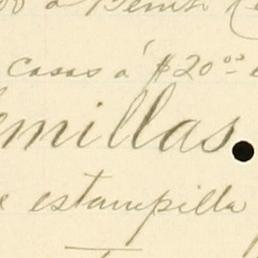 á Benit
casas á $20.00
emillas.
estampilla